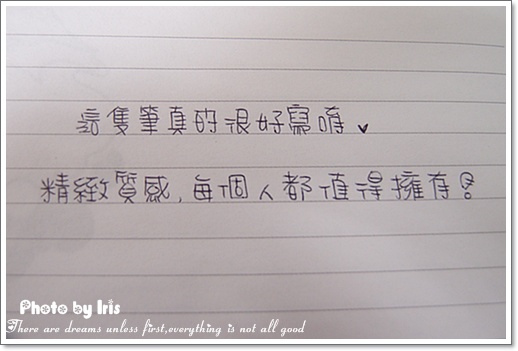 這隻筆真的很好寫唷♥
精緻質感,每個人都值得擁存!
Photo by Iris
There are dreams unless first,everything is not all good